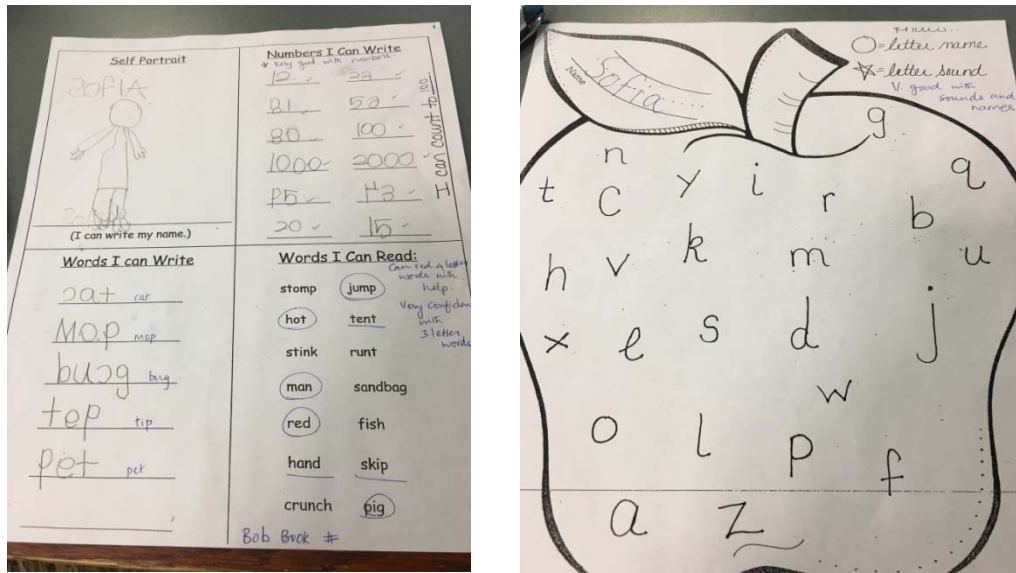 Self Portrait
SOFIA
(I can write my name.)
Numbers I Can Write
* Very good with numbers
12 23
81 52
80 100
1000 2000
P5 H3
20 15
I can count to 100
Words I can Write
cat cat
Mop mop
bucg bug
tep tip
pet pet
Words I Can Read:
Can red 4 letter
words with
help.
Very confiden
with
3 letter
words
stomp jump
hot tent
stink runt
man sandbag
red fish
hand skip
crunch pig
Bob Book #
Name Sofia
=letter name
=letter sound
V. good with
sounds and
names
g
n q
t c y i r b
h v k m u
x e s d j
w
o l p f
a z